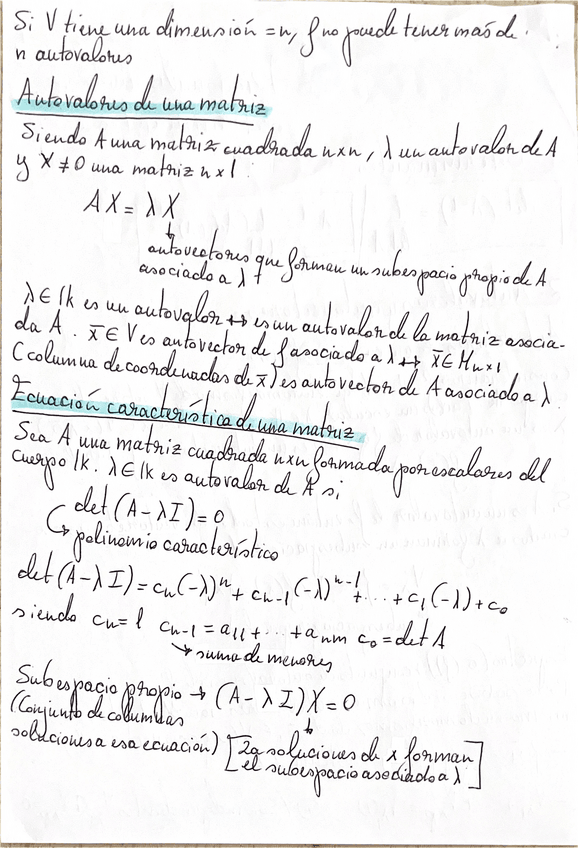 Si V tiene una dimensión = n, f no puede tener más de
n autovalores
Autovalores de una matriz
Siendo A una matriz cuadrada n×n, λ un autovalor de A
y X ≠ 0 una matriz n×1:
AX = λX
↓
autovectores que forman un subespacio propio de A
asociado a λ
λ ∈ lk es un autovalor ↔ es un autovalor de la matriz asocia-
da A. x̄ ∈ V es autovector de f asociado a λ ↔ x̄ ∈ Mn×1
(columna de coordenadas de x̄) es autovector de A asociado a λ.
Ecuación característica de una matriz
Sea A una matriz cuadrada n×n formada por escalares del
cuerpo lk. λ ∈ lk es autovalor de A si
det(A - λI) = 0
↳ polinomio característico
det(A - λI) = cn(-λ)^n + cn-1(-λ)^n-1 + ... + c1(-λ) + c0
siendo cn = 1 cn-1 = a11 + ... + anm c0 = det A
↘ suma de menores
Subespacio propio → (A - λI)X = 0
(Conjunto de columnas
soluciones a esa ecuación) [soluciones de x forman
el subespacio asociado a λ]